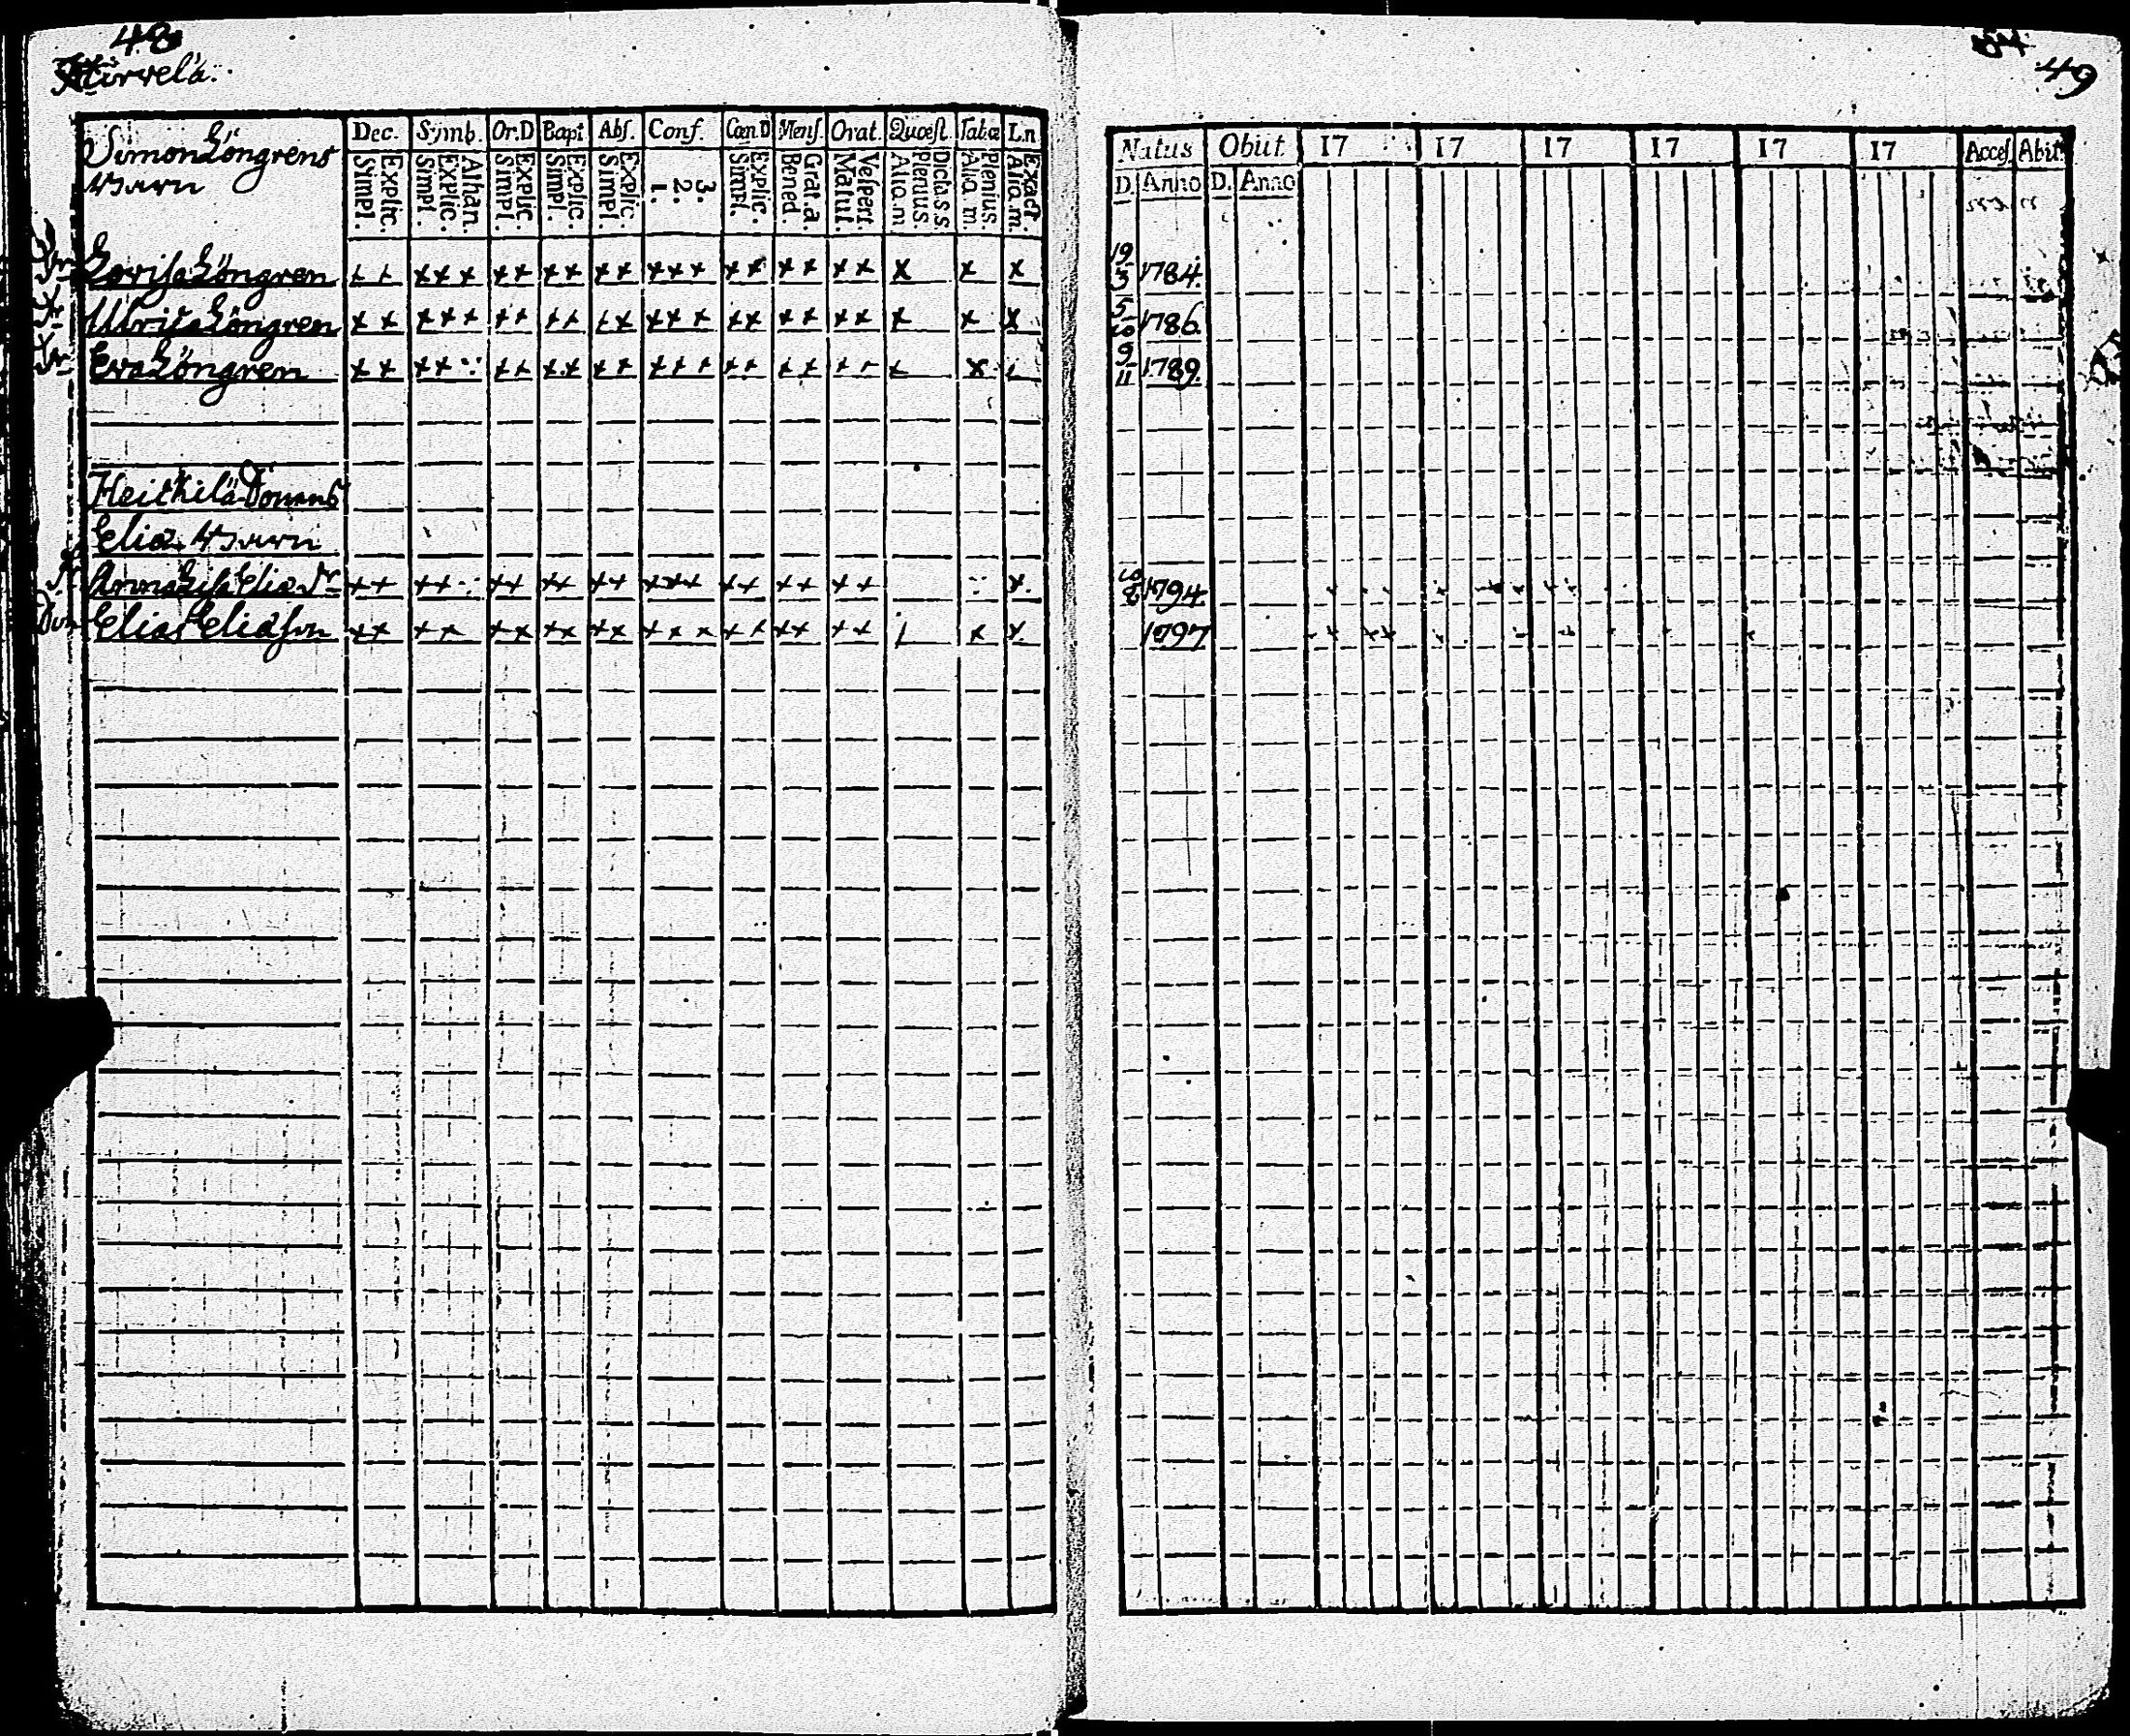 48
Kärvelä.
Dec. Symb. Or.D Bapt Abs. Conf. Cœn D Mens. Orat. Quœst. Tabœ Ln
Simon Löngrens
Barn
Simpl. Explic. Simpl. Explic. Athan. Simpl. Explic. Simpl. Explic. Simpl. Explic. 1. 2. 3. Simpl. Explic. Bened. Grat. a. Matut. Vespert. Aliq. m. Plenius. Dicta. s s. Aliq. m. Plenius. Aliq. m. Exact.
Dr Lovisa Löngren x x x x x x x x x x x x x x x x x x x x x x x
Dr Ulrica Löngren x x x x x x x x x x x x x x x x x x x x x x x
Dr Eva Löngren x x x x x x x x x x x x x x x x x x x x x x
Heickilä
Eliæ Barn
Dr Anna Lisa Eliæ Dr x x x x x x x x x x x x x x x x x x x
Son Elias Eliasson x x x x x x x x x x x x x x x x x x x x x
49
Natus Obiit 17 17 17 17 17 17 Acces. Abit.
D. Anno D. Anno
19/3 1784.
5/10 1786.
9/11 1789.
1794.
1797